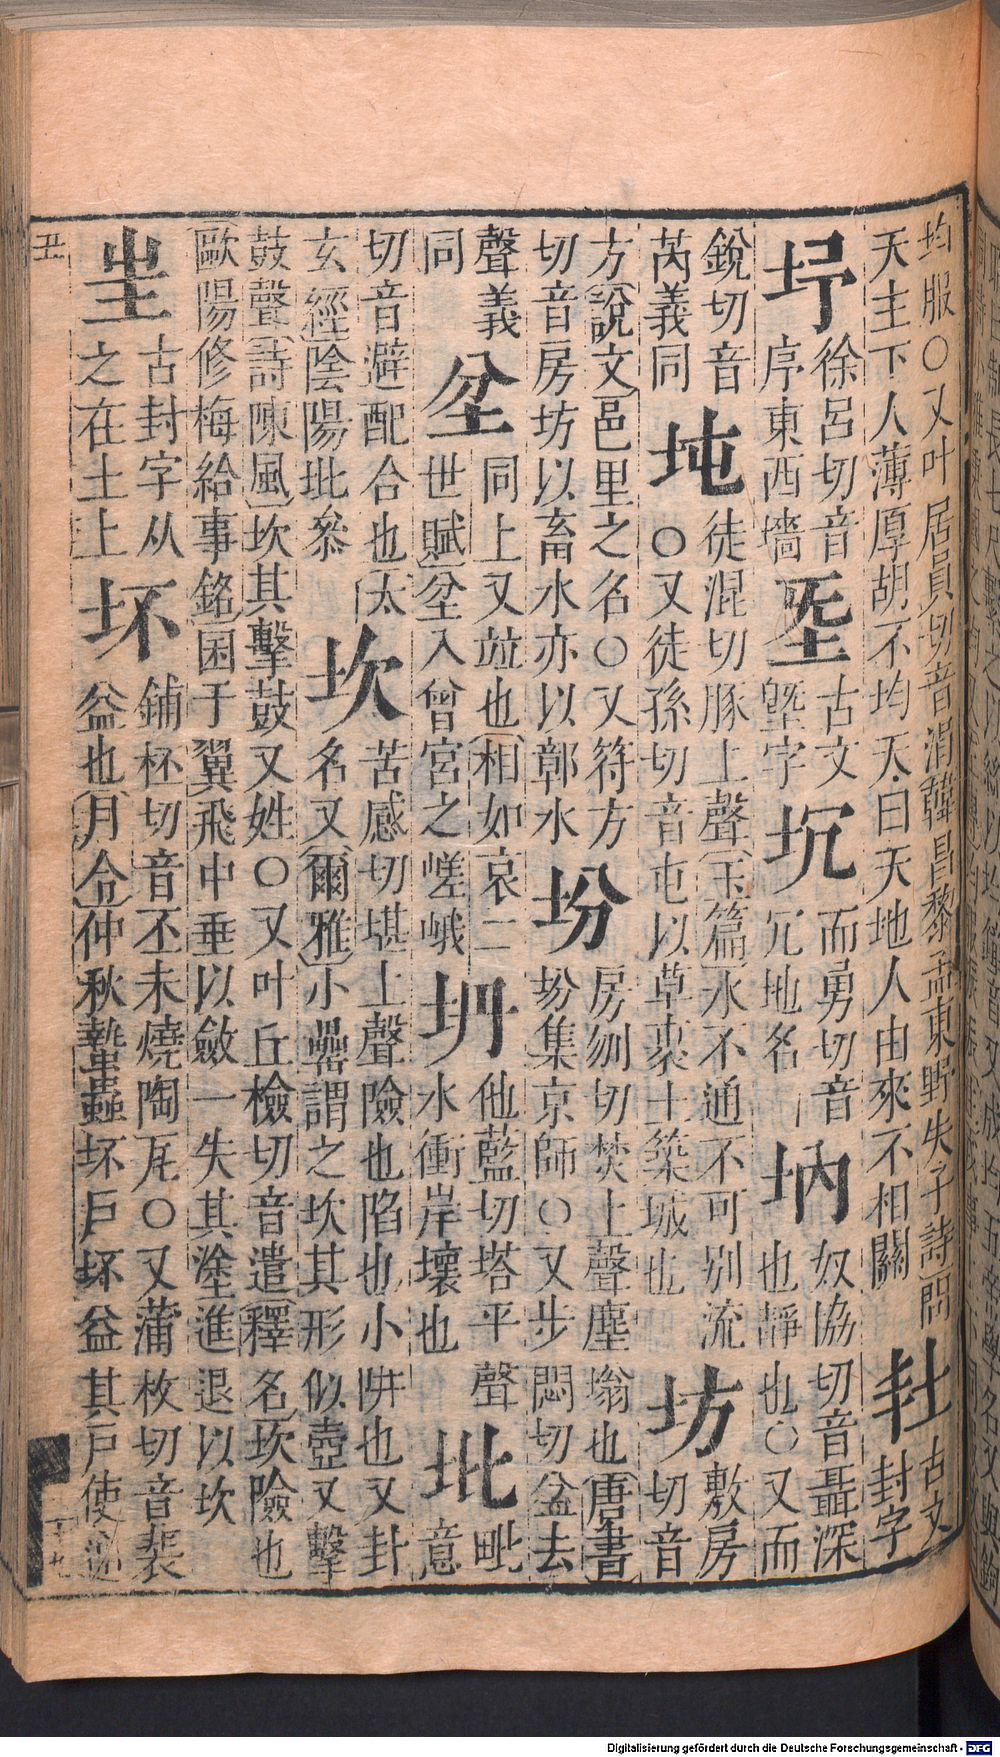 均服〇又叶居員切音涓韓昌黎孟東野失子詩問
天主下人薄厚胡不均天曰天地人由來不相關
古文
封字
徐呂切音
序東西墻
古文
坈
而勇切音
冗地名
㘨
奴協切音聶深
也靜也〇又而
銳切音
芮義同
坉
徒混切豚上聲玉篇水不通不可別流
〇又徒孫切音屯以草裹土築城也
坊
敷房
切音
方說文邑里之名〇又符方
切音房坊以畜水亦以鄣水
坋
房刎切焚上聲塵塕也唐書
坋集京師〇又步悶切盆去
聲義
同
坌
同上又竝也相如哀二
世賦坌入曾宮之嵯峨
坍
他藍切塔平聲
水衝岸壞也
坒
毗
意
切音避配合也太
玄經陰陽坒參
坎
苦感切堪上聲險也陷也小阱也又卦
名又爾雅小罍謂之坎其形似壺又擊
鼓聲詩陳風坎其擊鼓又姓〇又叶丘檢切音遣釋名坎險也
歐陽修梅給事銘困于翼飛中垂以斂一失其塗進退以坎
𡉚
古封字从
之在土上
坏
鋪杯切音丕未燒陶瓦〇又蒲枚切音裴
益也月令仲秋蟄蟲坏戶坏益其戶使
丑
十九
Digitalisierung gefördert durch die Deutsche Forschungsgemeinschaft - DFG